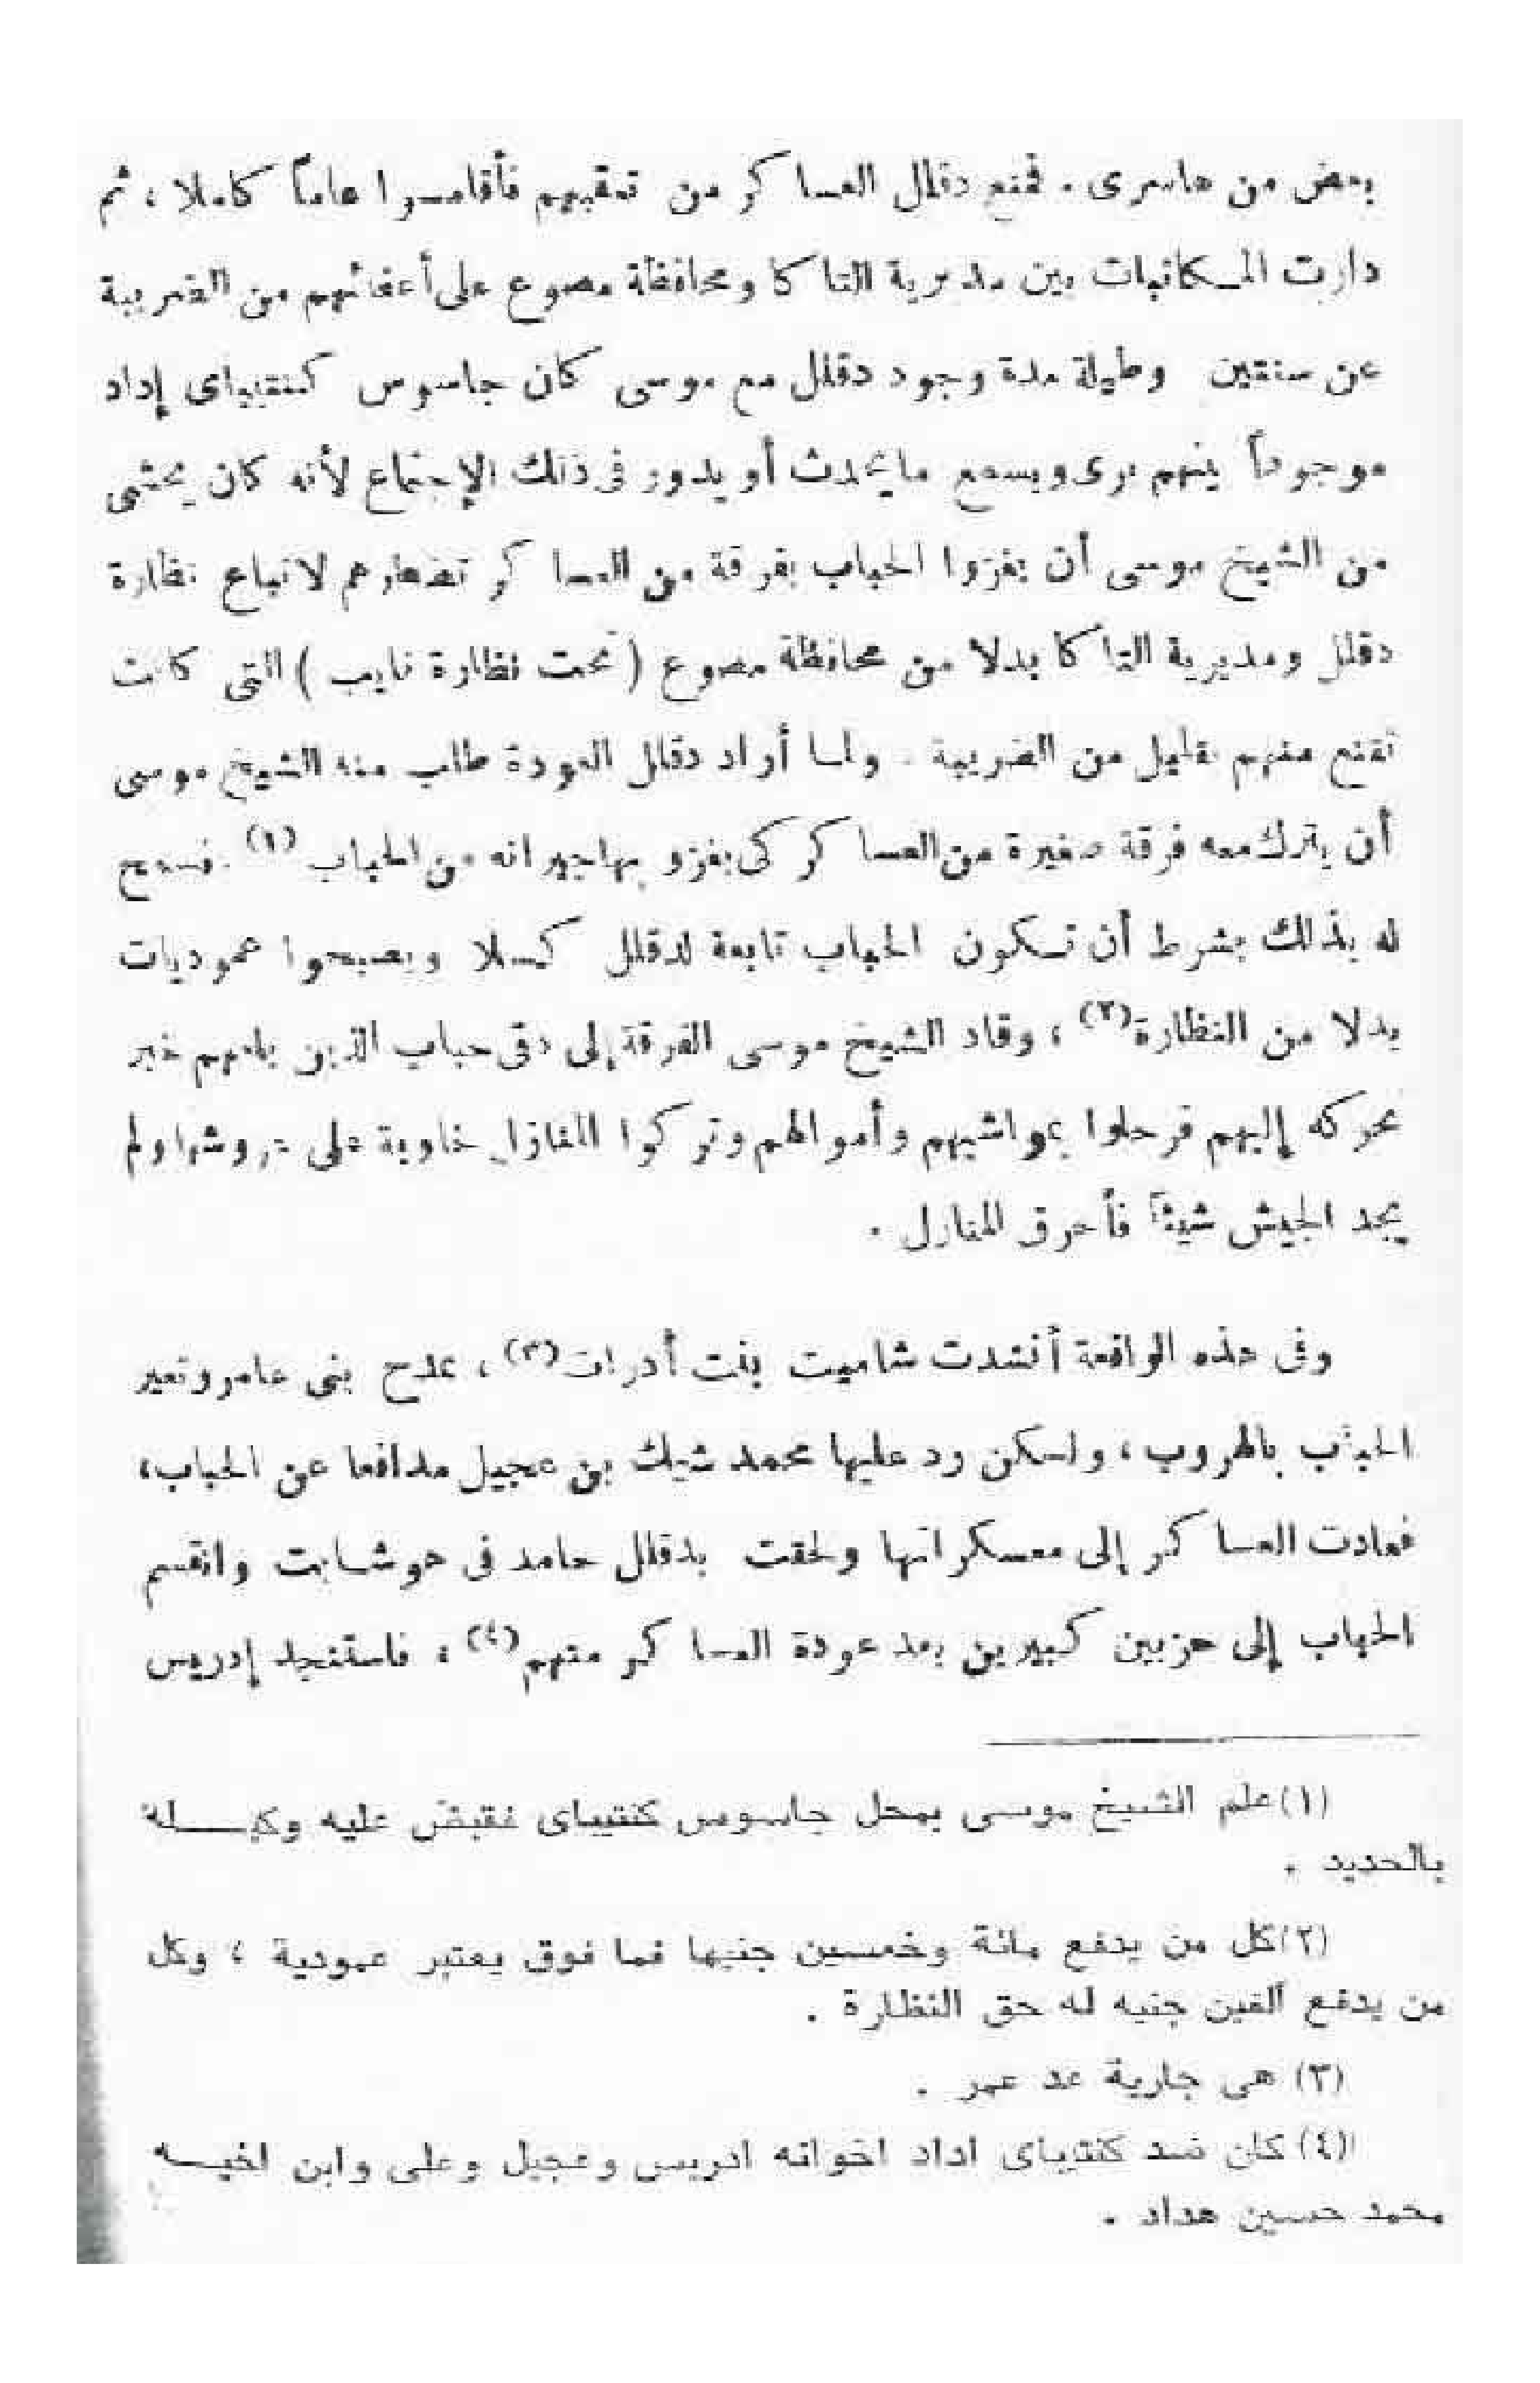 بعض من هاسرى . فمنع دقلل العساكر من تعقبهم فأقامسوا عاماً كاملا ، ثم
دارت المكاتبات بين مديرية التاكا ومحافظة مصوع على أعفائهم من الضريبة
عن سنتين وطيلة مدة وجود دقلل مع موسى كان جاسوس كنتيباى إداد
موجوداً بينهم يرى ويسمع ما يحدث أو يدور فى ذلك الإجتماع لأنه كان يخشى
من الشيخ موسى أن يغزوا الحباب بفرقة من العساكر تضطرهم لاتباع نظارة
دقلل ومديرية التاكا بدلا من محافظة مصوع ( تحت نظارة نايب ) التى كانت
تقنع منهم بقليل من الضريبة . ولما أراد دقلل العودة طلب منه الشيخ موسى
أن يترك معه فرقة صغيرة من العساكر كى يغزو بها جيرانه من الحباب (١) . فسمح
له بذلك بشرط أن تكون الحباب تابعة لدقلل كسلا ويصبحوا عموديات
بدلا من النظارة (٢) ، وقاد الشيخ موسى الفرقة إلى دقى حباب الذين بلغهم خبر
تحركه إليهم فرحلوا بمواشيهم وأموالهم وتركوا المنازل خاوية على عروشها ولم
يجد الجيش شيئاً فأحرق المنازل .
وفى هذه الواقعة أنشدت شاميت بنت أدراث (٣) ، تمدح بنى عامر وتعير
الحباب بالهروب ، ولكن رد عليها محمد شيك بن عجيل مدافعا عن الحباب ،
فعادت العساكر إلى معسكراتها ولحقت بدقلل حامد فى هوشايت وانقسم
الحباب إلى حزبين كبيرين بعد عودة العساكر منهم (٤) ، فاستنجد إدريس
(١) علم الشيخ موسى بمحل جاسوس كنتيباى فقبض عليه وكبله
بالحديد .
(٢) كل من يدفع مائة وخمسين جنيها فما فوق يعتبر عمودية ، وكل
من يدفع ألفين جنيه له حق النظارة .
(٣) هى جارية عد عمر .
(٤) كان ضد كنتيباى اداد اخوانه ادريس وعجيل وعلى وابن اخيه
محمد حسين هداد .